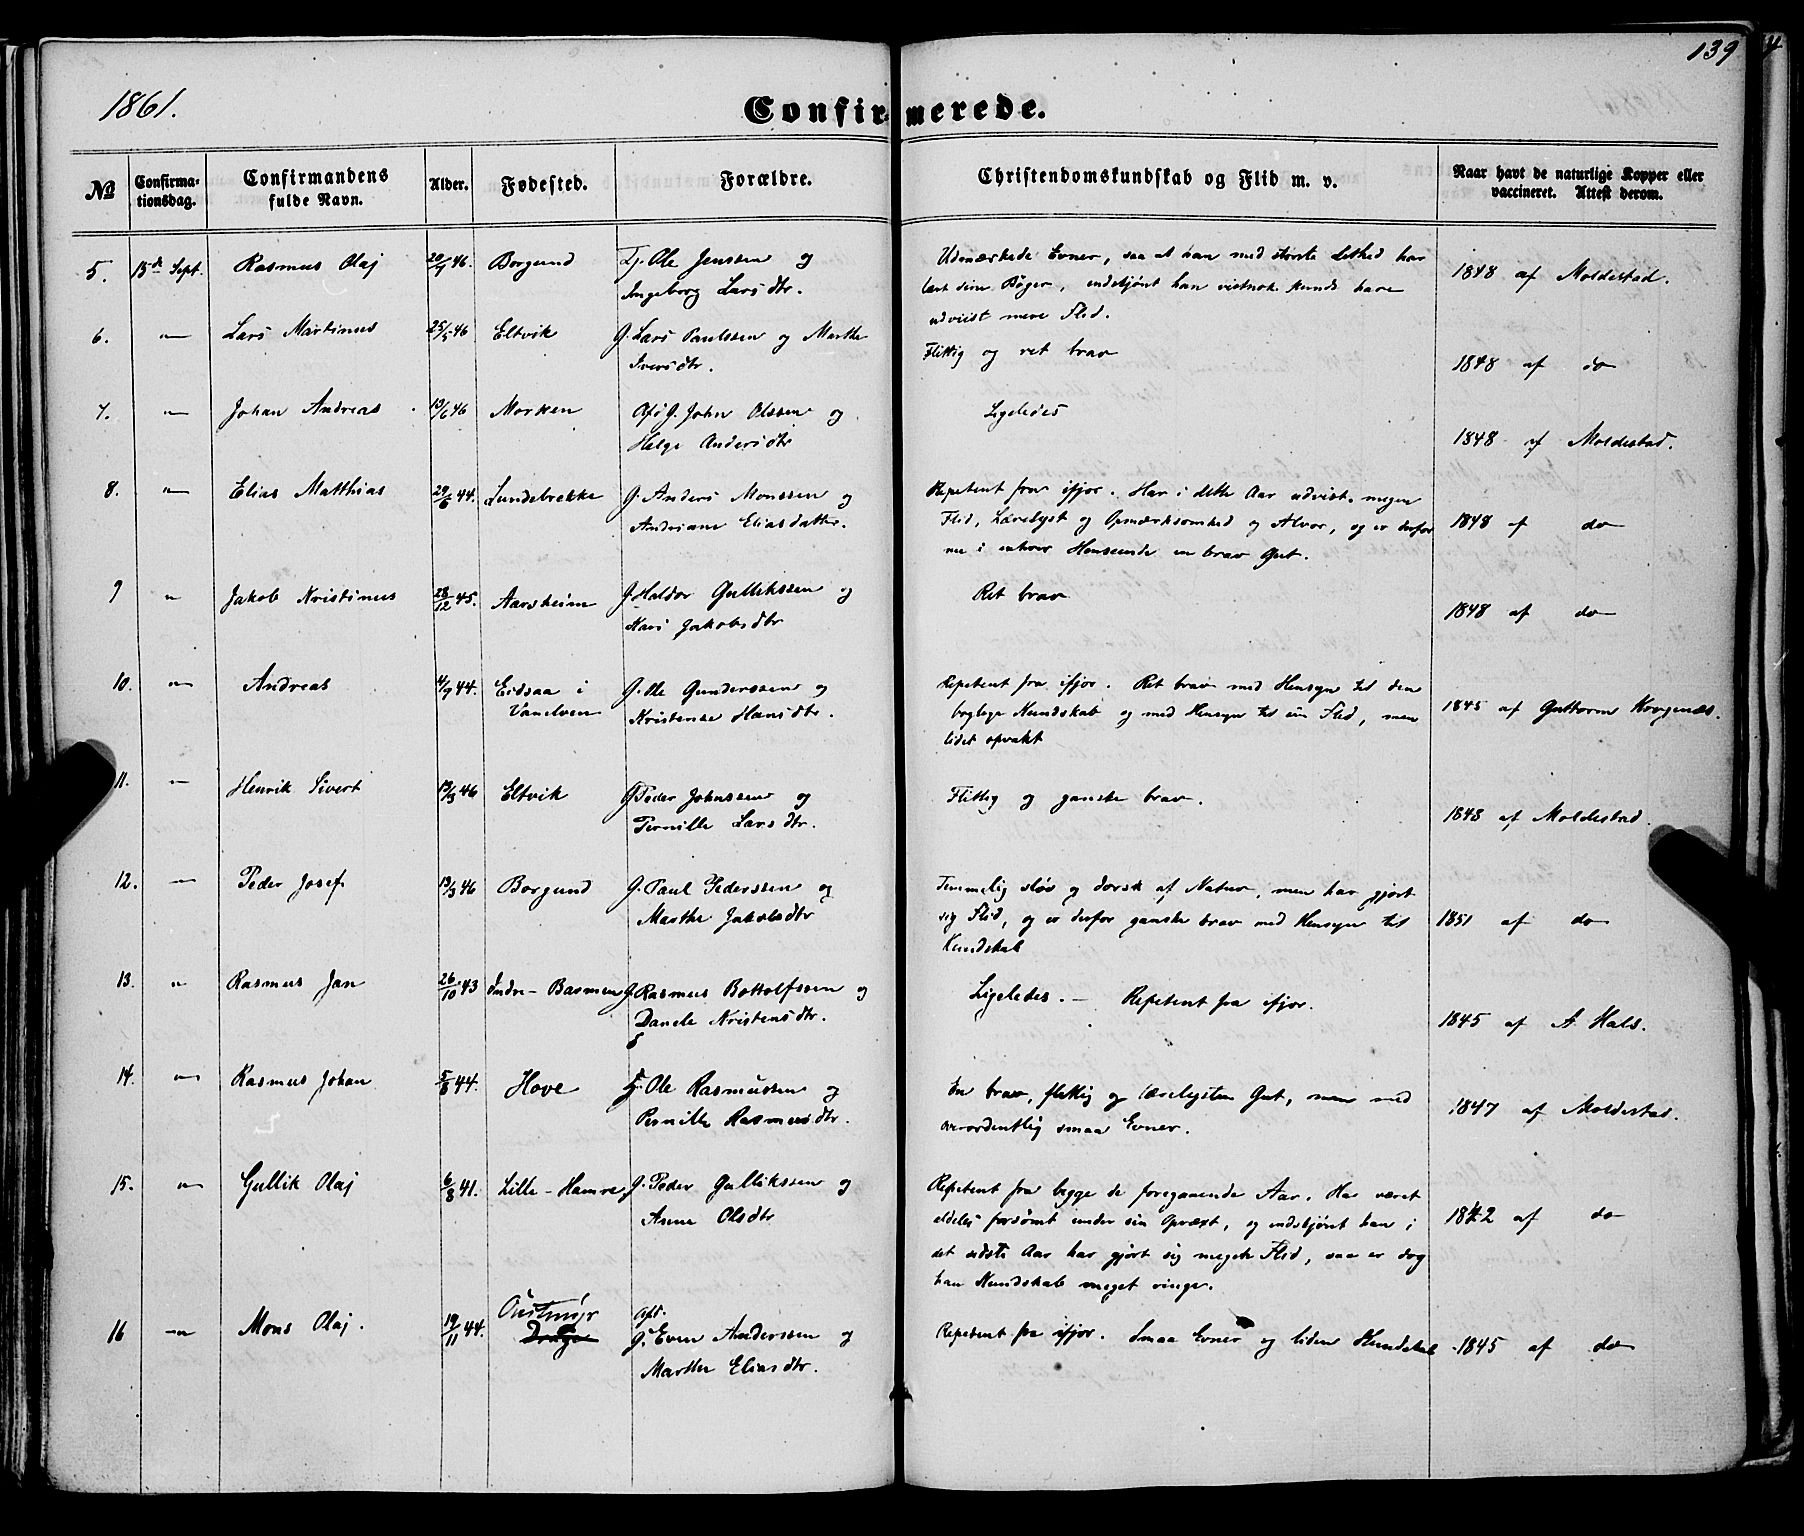 139
1861.
Confirmerede.
№ Confirmationsdag. Confirmandens fulde Navn. Alder. Fødested. Forældre. Christendomskundskab og Flid m. v. Naar havt de naturlige Kopper eller vaccineret. Attest derom.
5. 15de Sept. Rasmus Olaj 20/7 46. Borgund Tj. Ole Jenssen og Udmærkede Evner, saa at han med største Lethed har
Ingeborg Larsdtr. lært sine Bøger, endskjønt han vistnok kunde have 1848 af Moldestad.
udviist mere Flid.
6. — Lars Martinus 25/5 46 Eltvik G. Lars Paulssen og Marthe Flittig og ret brav 1848 af do
Iversdtr.
7. — Johan Andreas 19/6 46 Morken Afd. G. John Olssen og Ligeledes
Helge Andersdtr 1848 af Moldestad.
8. — Elias Matthias 29/6 44. Lundebrekke G. Anders Monssen og Repetent fra ifjor. Har i dette Aar udvist megen
Andriane Eliasdatter. Flid, Lærelyst og Opmærksomhed og Alvor, og er derfor 1848 af do
nu i enhver Henseende en brav Gut.
9 " Jakob Kristinus 28/12 45. Aarsheim G. Haldor Gullikssen og Ret brav
Kari Jakobsdtr 1848 af do
10. — Andreas 4/7 44. Eidsaa i G. Ole Gunderssen og Repetent fra ifjor. Ret brav med Hensyn til den
Vanelven Kristense Hansdtr. boglige Kundskab og med Hensyn til sin Flid, men 1845 af Guttorm Koppenæs.
lidet opvakt
11. — Henrik Sivert 19/3 46 Eltvik G. Peder Johnssen og Flittig og ganske brav.
Pernille Larsdtr. 1848 af Moldestad.
12. — Peder Josef 19/3 46 Borgund G. Paul Pederssen og Temmelig sløv og dorsk af Natur, men har gjort
Marthe Jakobsdtr sig Flid, og er derfor ganske brav med Hensyn til 1851 af do
Kundskab
13. " Rasmus Jan 26/10 43 Indre-Basmen G. Rasmus Bottolfssen og Ligeledes. — Repetent fra ifjor.
Danele Kristensdtr. 1845 af A Hals.
14. — Rasmus Johan 5/8 44. Hove Tj. Ole Rasmussen og En brav, flittig og lærelysten Gut, men med
Pernille Rasmusdtr. overordentlig smaa Evner. 1847 af Moldestad.
15. — Gullik Olaj 6/8 41. Lille-Hamre G. Peder Gullikssen og Repetent fra begge de foregaaende Aar. Har været
Anne Olsdtr aldeles forsømt under sin Opvæxt, og endskjønt han i 1842 af do
det sidste Aar har gjort sig megen Flid, saa er dog
hans Kundskab meget ringe.
16 — Mons Olaj. 19/11 44. Oustmyr Afd.
G. Even Anderssen og Repetent fra ifjor. Smaa Evner og liden Kundskab 1845 af do
Marthe Eliasdtr.